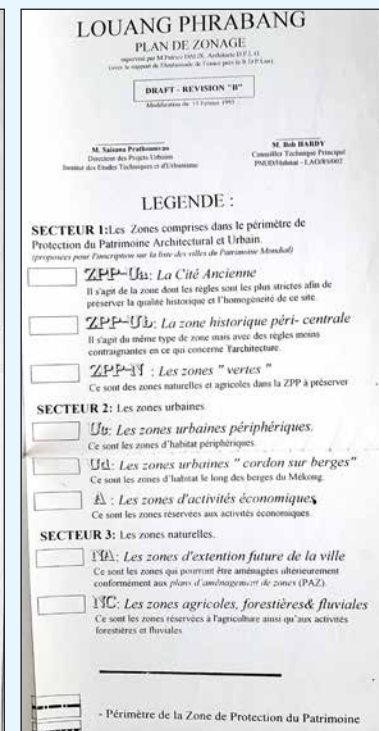 LOUANG PHRABANG
PLAN DE ZONAGE
DRAFT - REVISION "B"
Modification du 13 Février 1995
M. Bob HARDY
Directeur des Projets Urbains
Conseiller Technique Principal
Institut des Etudes Techniques et d'Urbanisme
LEGENDE :
SECTEUR 1:Les Zones comprises dans le périmètre de
Protection du Patrimoine Architectural et Urbain.
(proposées pour l'inscription sur la liste des villes du Patrimoine Mondial)
ZPP-Ua: La Cité Ancienne
Il s'agit de la zone dont les règles sont les plus strictes afin de
préserver la qualité historique et l'homogénéité de ce site.
ZPP-Ub: La zone historique péri- centrale
Il s'agit du même type de zone mais avec des règles moins
contraignantes en ce qui concerne l'architecture.
ZPP-N : Les zones " vertes "
Ce sont des zones naturelles et agricoles dans la ZPP à préserver
SECTEUR 2: Les zones urbaines.
Les zones urbaines périphériques.
Ce sont les zones d'habitat périphériques.
Ud: Les zones urbaines " cordon sur berges"
Ce sont les zones d'habitat le long des berges du Mékong.
A : Les zones d'activités économiques
Ce sont les zones réservées aux activités économiques.
SECTEUR 3: Les zones naturelles.
NA: Les zones d'extention future de la ville
Ce sont les zones qui pourront être aménagées ultérieurement
conformément aux plans d'aménagement de zones (PAZ).
NC: Les zones agricoles, forestières& fluviales
Ce sont les zones réservées à l'agriculture ainsi qu'aux activités
forestières et fluviales
- Périmètre de la Zone de Protection du Patrimoine